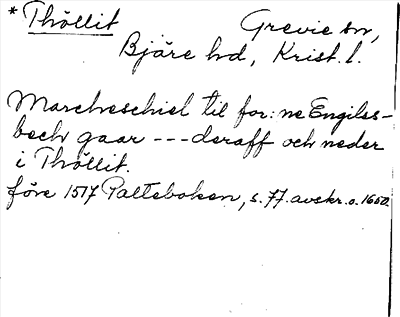 * Thöllit Grevie sn,
Bjäre hd, Krist. l.
Marcheschiel til for: ne Engilss-
bech gaar --- deraff och neder
i Thöllit.
före 1517 Palteboken, s. 77. avskr. o. 1650.